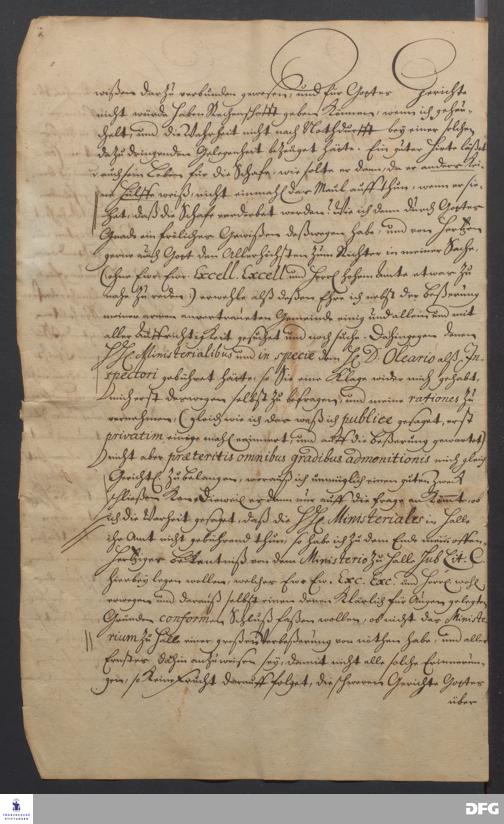 wißen darzu verbunden gewesen, und für Gottes Gerichte
nicht würde haben Rechenschafft geben können, wenn ich geheu-
chelt, und die Wahrheit nicht nach Nothdurfft bey einer solchen
dazu dringenden Gelegenheit bezeuget hätte. Ein guter Hirte läßet
auch sein Leben für die Schafe, wie solte er denn, da er anders kei-
ne Hülffe weiß, nicht einmahl das Maul auffthun, wenn er sie-
het, daß die Schafe verderbet werden? Wie ich denn durch Gottes
Gnade ein fröliches Gewißen deßwegen habe, und von Hertzen
gerne auch Gott den Allerhöchsten zum Richter in meiner Sache,
(ohne Eur. Eur. Excell. Excell. und Herrl. hohem Amte etwas zu
nahe zu reden:) erwehle alß deßen Ehre ich nebst der Beßerung
meiner armen anvertraueten Gemeinde einig und allein und mit
aller Auffrichtigkeit gesuchet und noch suche. Dahingegen denen
Ministerialibus und in specie dem H. D. Oleario alß In-
spectori gebühret hätte, so Sie eine Klage wider mich gehabt,
mich erst deswegen selbst zu befragen, und meine rationes zu
vernehmen, (gleich wie ich das waß ich publice gesaget, erst
privatim einige mahl erinnert, und auff die Beßerung gewartet)
nicht aber præteritis omnibus gradibus admonitionis mich gleich
Gerichtl. zu belangen, worauß ich unmüglich einen guten Zweck
schließen kan. Dieweil es denn nur auff die Frage ankömmt, ob
ich die Warheit gesaget, daß die Ministeriales in Halle
ihr Amt nicht gebührend thun, so habe ich zu dem Ende mein offen-
hertziger Bekentniß von dem Ministerio zu Halle sub Lit. C
hierbey legen wollen, welches Eur. Eur. Exc. Exc. und Herrl. wohl
erwegen und darauß selbst einen denen klärlich für Augen gelegten
Gründen conformen Schluß faßen wollen, ob nicht das Ministe-
rium zu Halle einer großen Verbeßerung von nöthen habe und alles
Ernstes dahin anzuweisen sey, damit nicht alle solche Erinnerun-
gen, so keine Frucht darauff folget, die schweren Gerichte Gottes
über
FRANCKESCHE
STIFTUNGEN
DFG